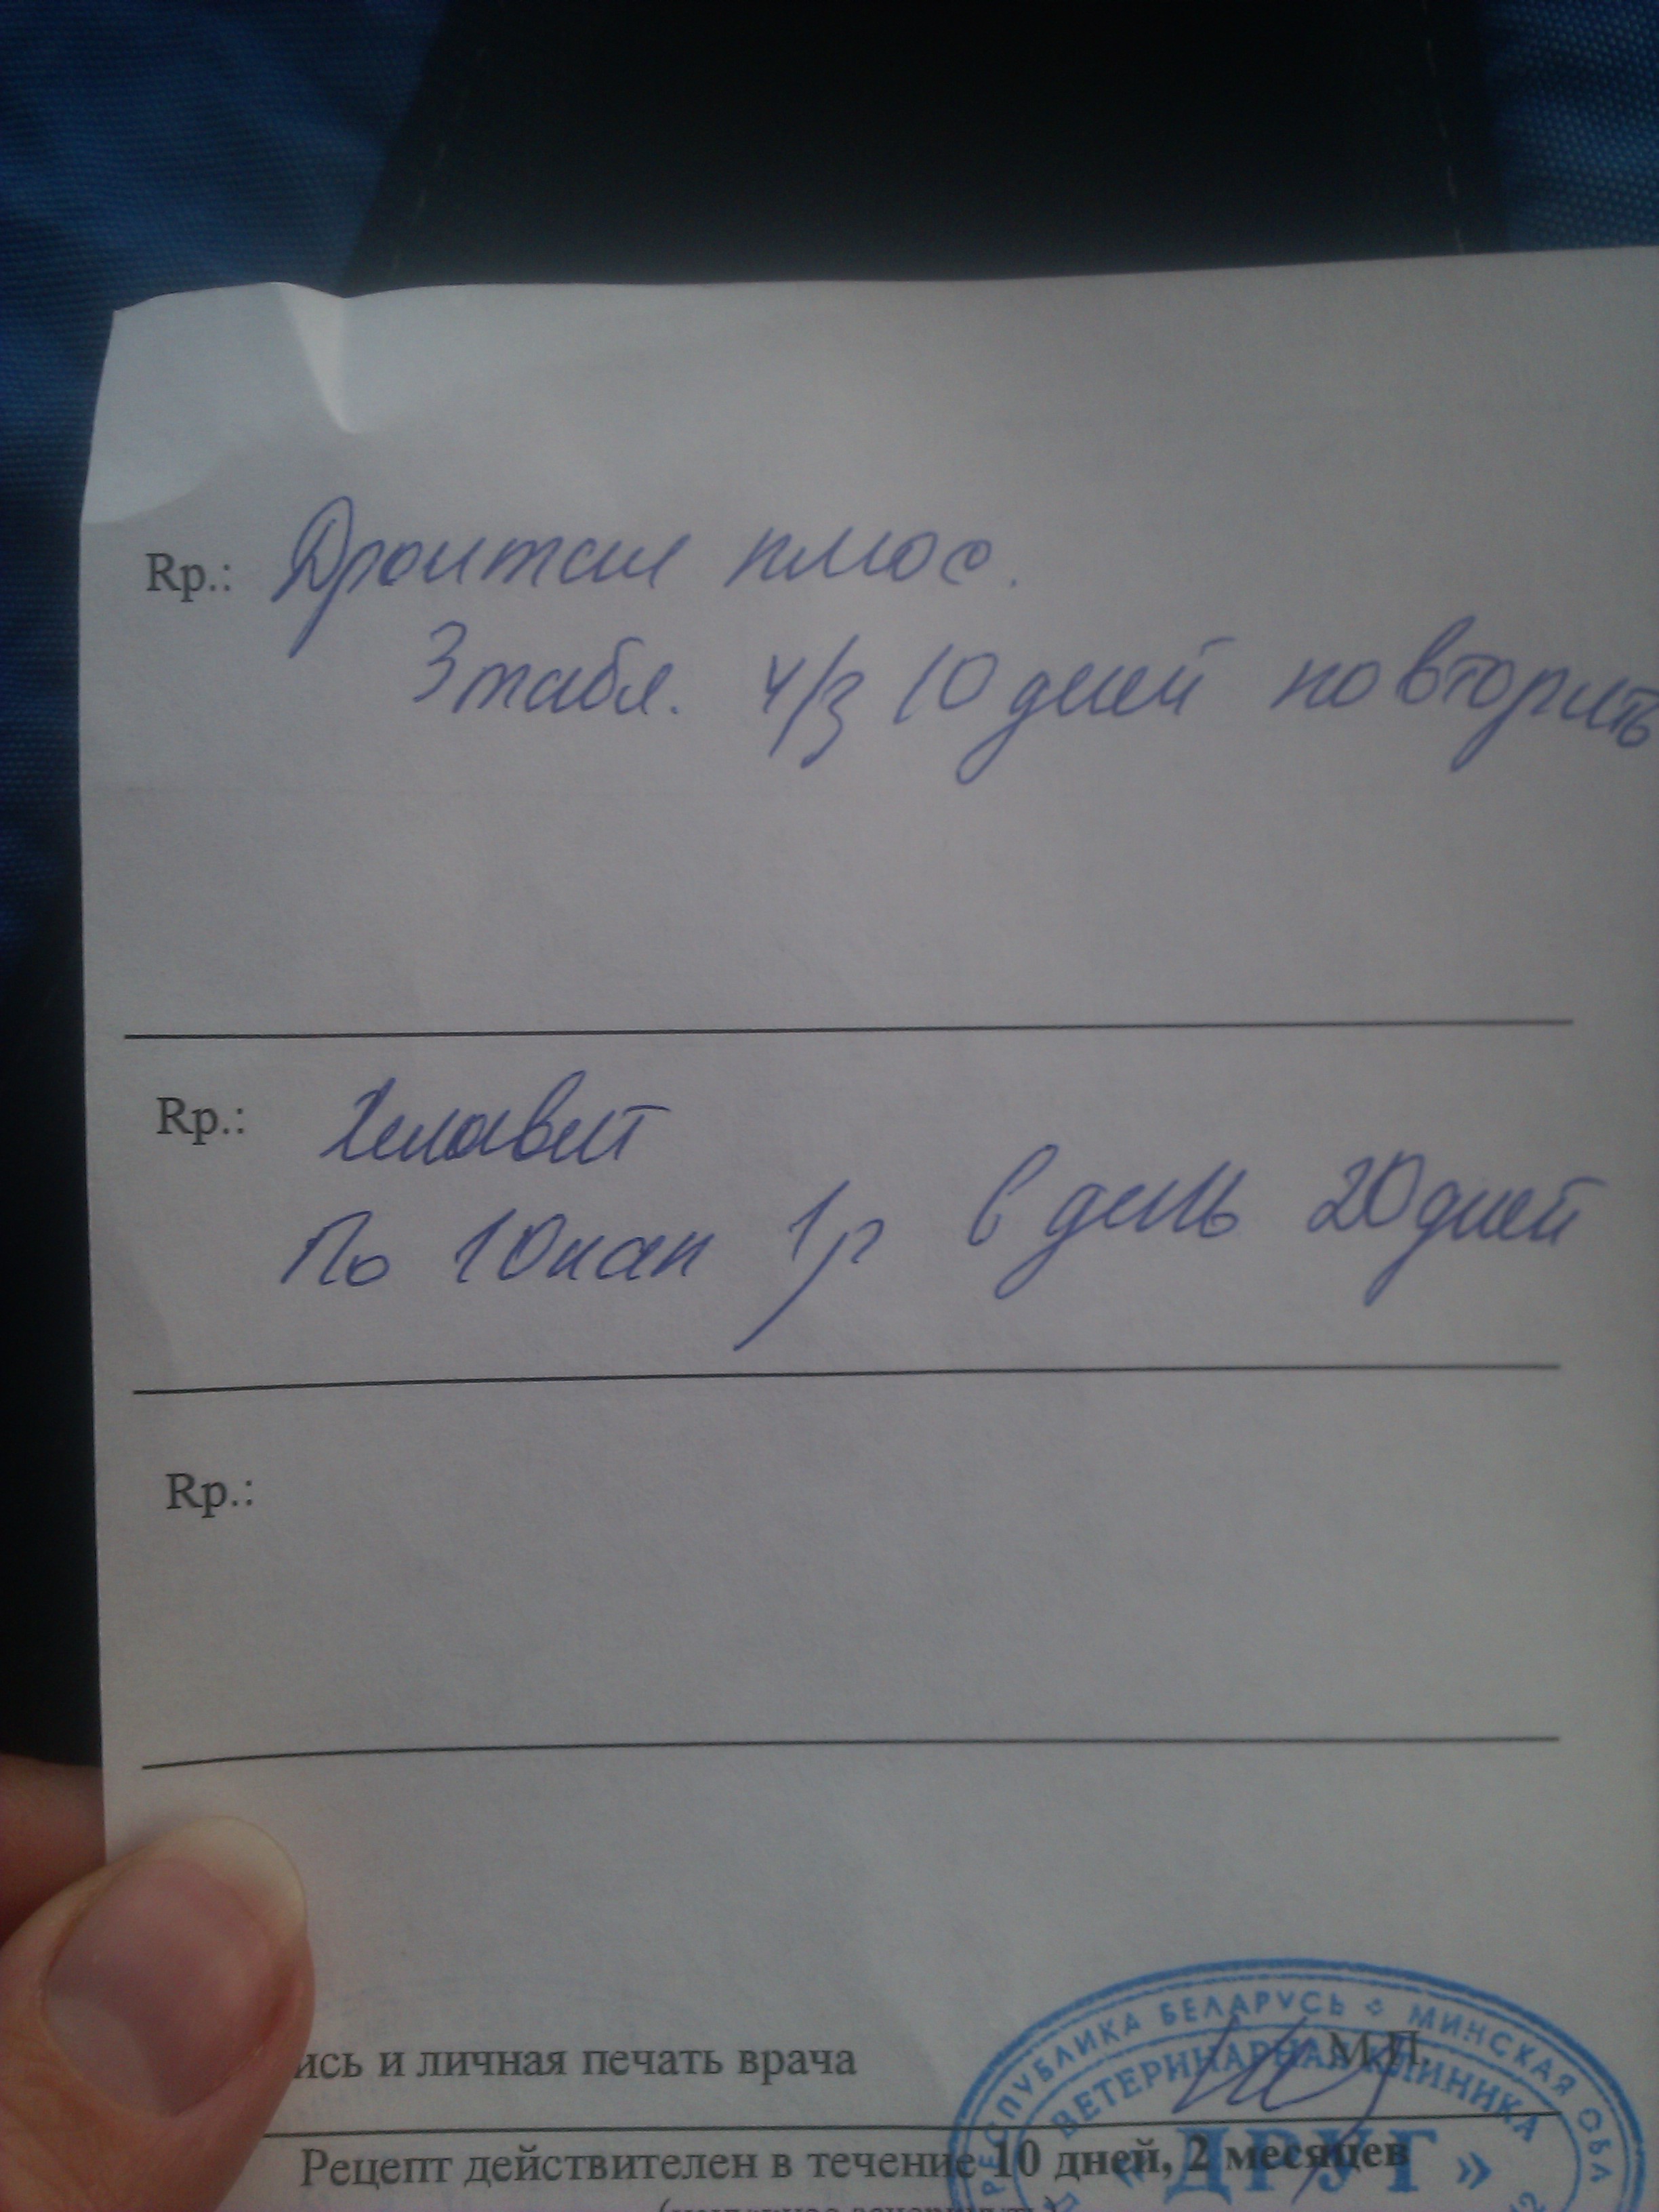 Rp.: Дронтал плюс.
3 табл. ч/з 10 дней повторить
Rp.: Хелавит
По 10 кап 1 р в день 20 дней
Rp.:
ись и личная печать врача
М.П.
Рецепт действителен в течение 10 дней, 2 месяцев
РЕСПУБЛИКА БЕЛАРУСЬ МИНСКАЯ ОБЛ
ВЕТЕРИНАРНАЯ КЛИНИКА
«ДРУГ»